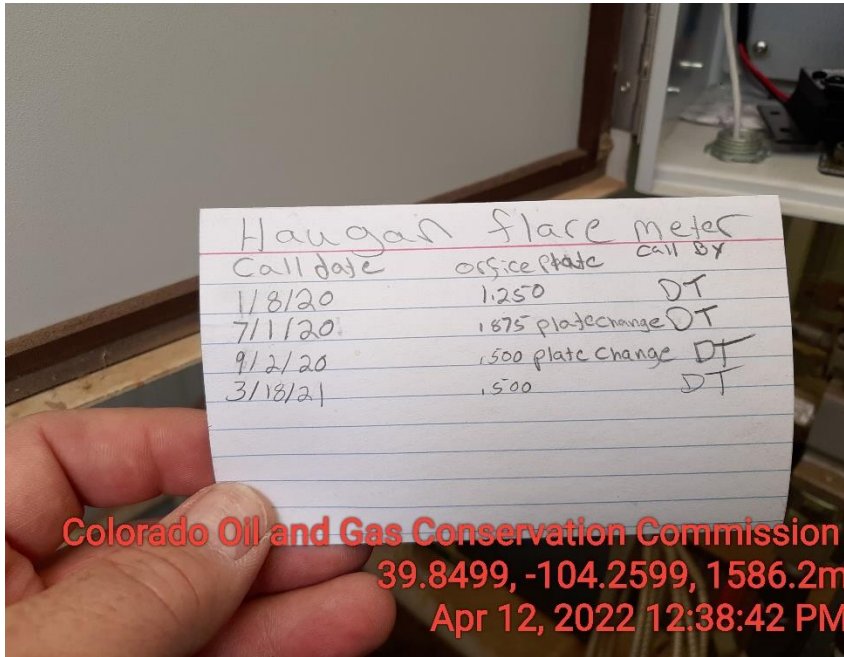 Haugan flare meter
Call date orffice plate Call By
1/8/20 1.250 DT
7/1/20 .875 plate change DT
9/2/20 .500 plate change DT
3/18/21 .500 DT
Colorado Oil and Gas Conservation Commission
39.8499, -104.2599, 1586.2m
Apr 12, 2022 12:38:42 PM